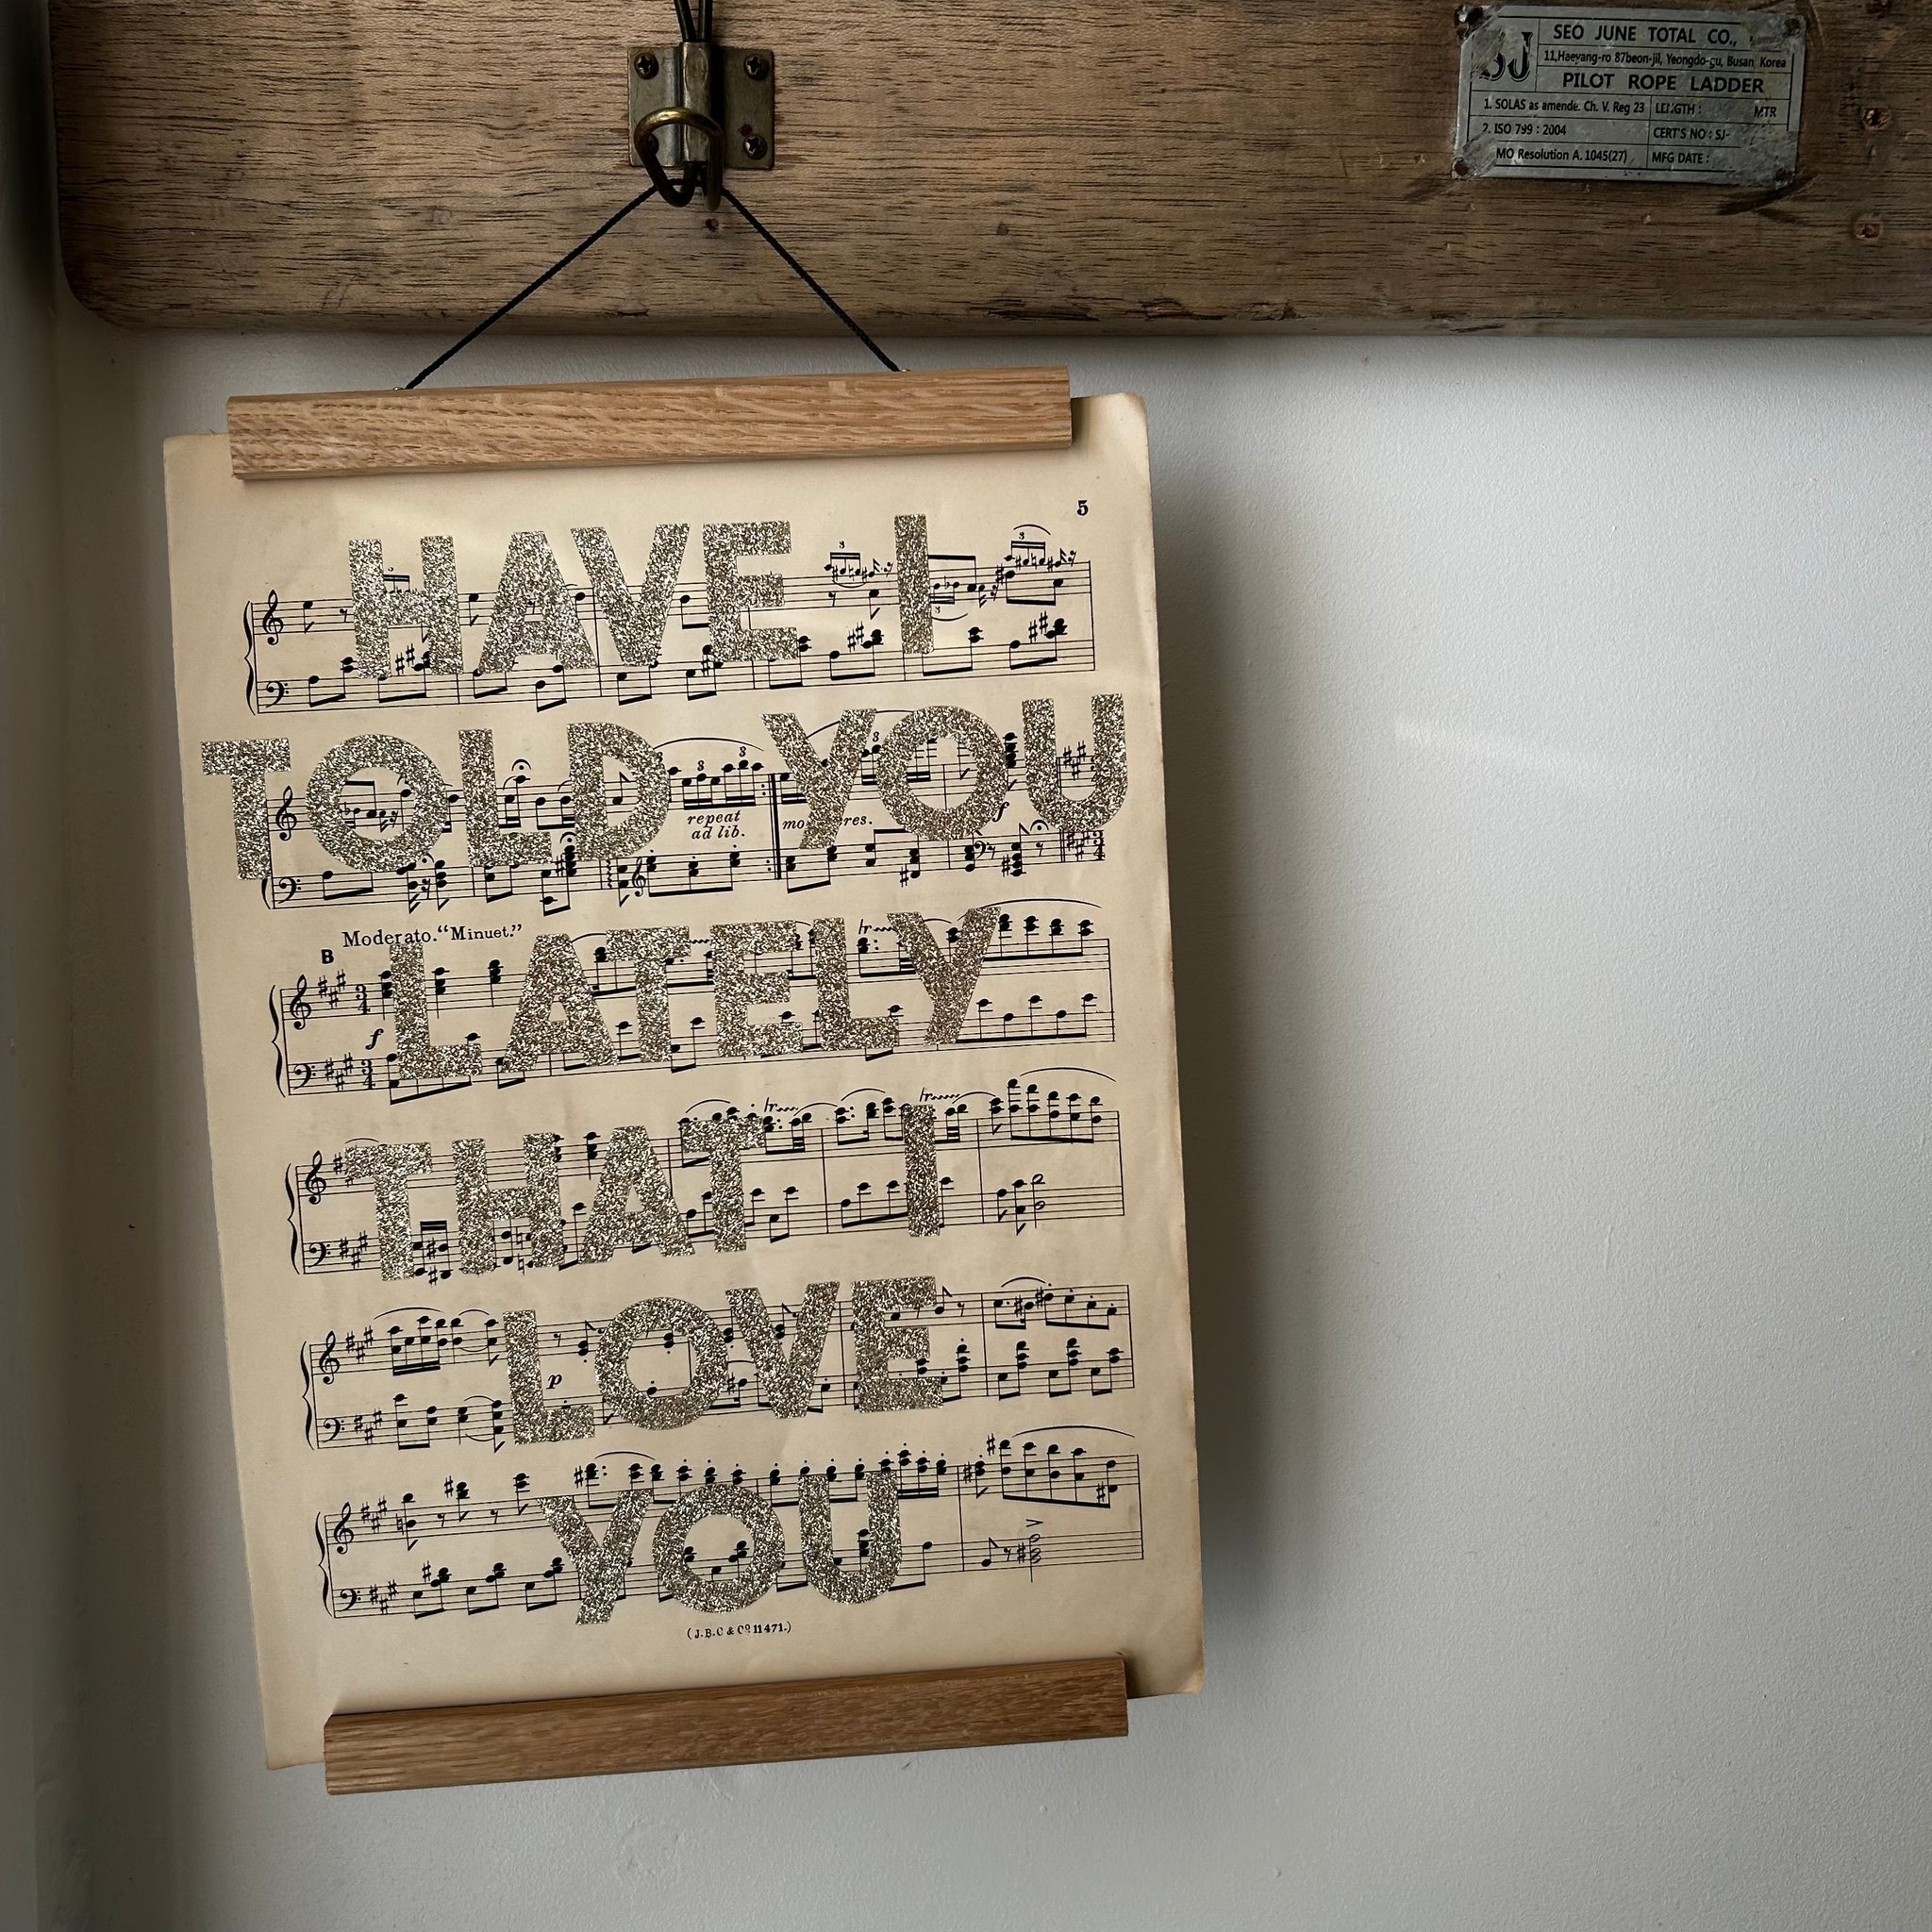 SEO JUNE TOTAL CO.,
11,Haeyang-ro 87beon-jil, Yeongdo-gu, Busan, Korea
PILOT ROPE LADDER
1. SOLAS as amende. Ch. V. Reg 23 LENGTH : MTR
2. ISO 799 : 2004 CERT'S NO : SJ-
MO Resolution A. 1045(27) MFG DATE :
5
HAVE I
TOLD YOU
repeat
ad lib.
Moderato. “Minuet.”
B
LATELY
f
THAT I
LOVE
p
YOU
(J.B.C & Co 11471.)